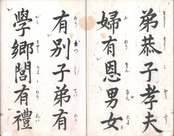 弟恭子孝夫
婦有恩男女
有別子弟有
學鄉閭有禮